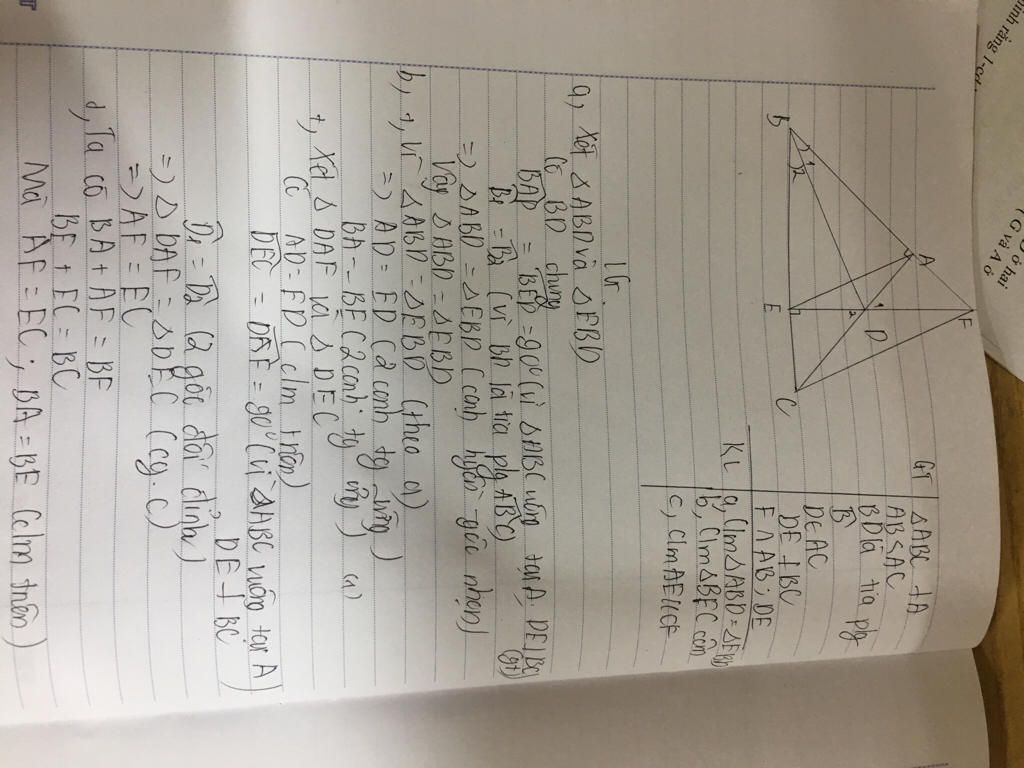 GT
△ABC ⊥A
AB<AC
BD là tia pg
B̂
D∈AC
DE ⊥ BC
F ∩ AB; DE
KL
a, C/m △ABD = △EBD
b, C/m △BFC cân
c, C/m AE//CF
B
1
2
A
F
1
2
D
E
C
LG
a, Xét △ABD và △EBD
Có BD chung
BAD = BED = 90° (vì △ABC vuông tại A, DE⊥BC
(gt)
B̂1 = B̂2 (vì BD là tia pg ABC)
=> △ABD = △EBD (cạnh huyền-góc nhọn)
Vậy △ABD = △EBD
b, +, Vì △ABD = △EBD (theo a)
=> AD = ED (2 cạnh tg ứng)
BA = BE (2 cạnh tg ứng)
+, Xét △DAF và △DEC
Có AD = ED (c/m trên)
DEC = DAF = 90° (vì △ABC vuông tại A)
DE ⊥ BC
D̂1 = D̂2 (2 góc đối đỉnh)
=> △DAF = △DEC (cg.c)
=> AF = EC
+, Ta có BA + AF = BF
BE + EC = BC
Mà AF = EC; BA = BE (c/m trên)
(G và A ở
ở hai